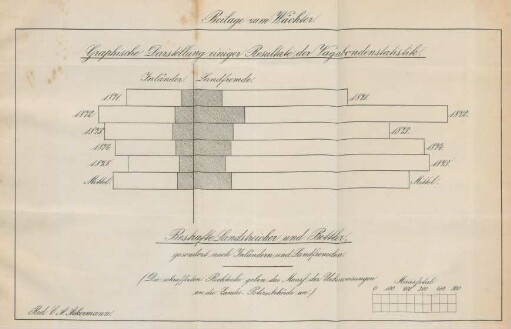 Beilage zum Wächter.
Graphische Darstellung einiger Resultate der Vagabondenstatistik.
Inländer. Landfremde.
1871. 1871.
1872. 1872.
1873. 1873.
1874. 1874.
1875. 1875.
Mittel. Mittel.
Bestrafte Landstreicher und Bettler,
gesondert nach Inländern und Landfremden.
(Die schraffirten Rechtecke geben das Maass der Ueberweisungen
an die Landes-Polizeibehörde an.)
Maasstab
0 100 200 300 400 500
Red. C. A. Ackermann.